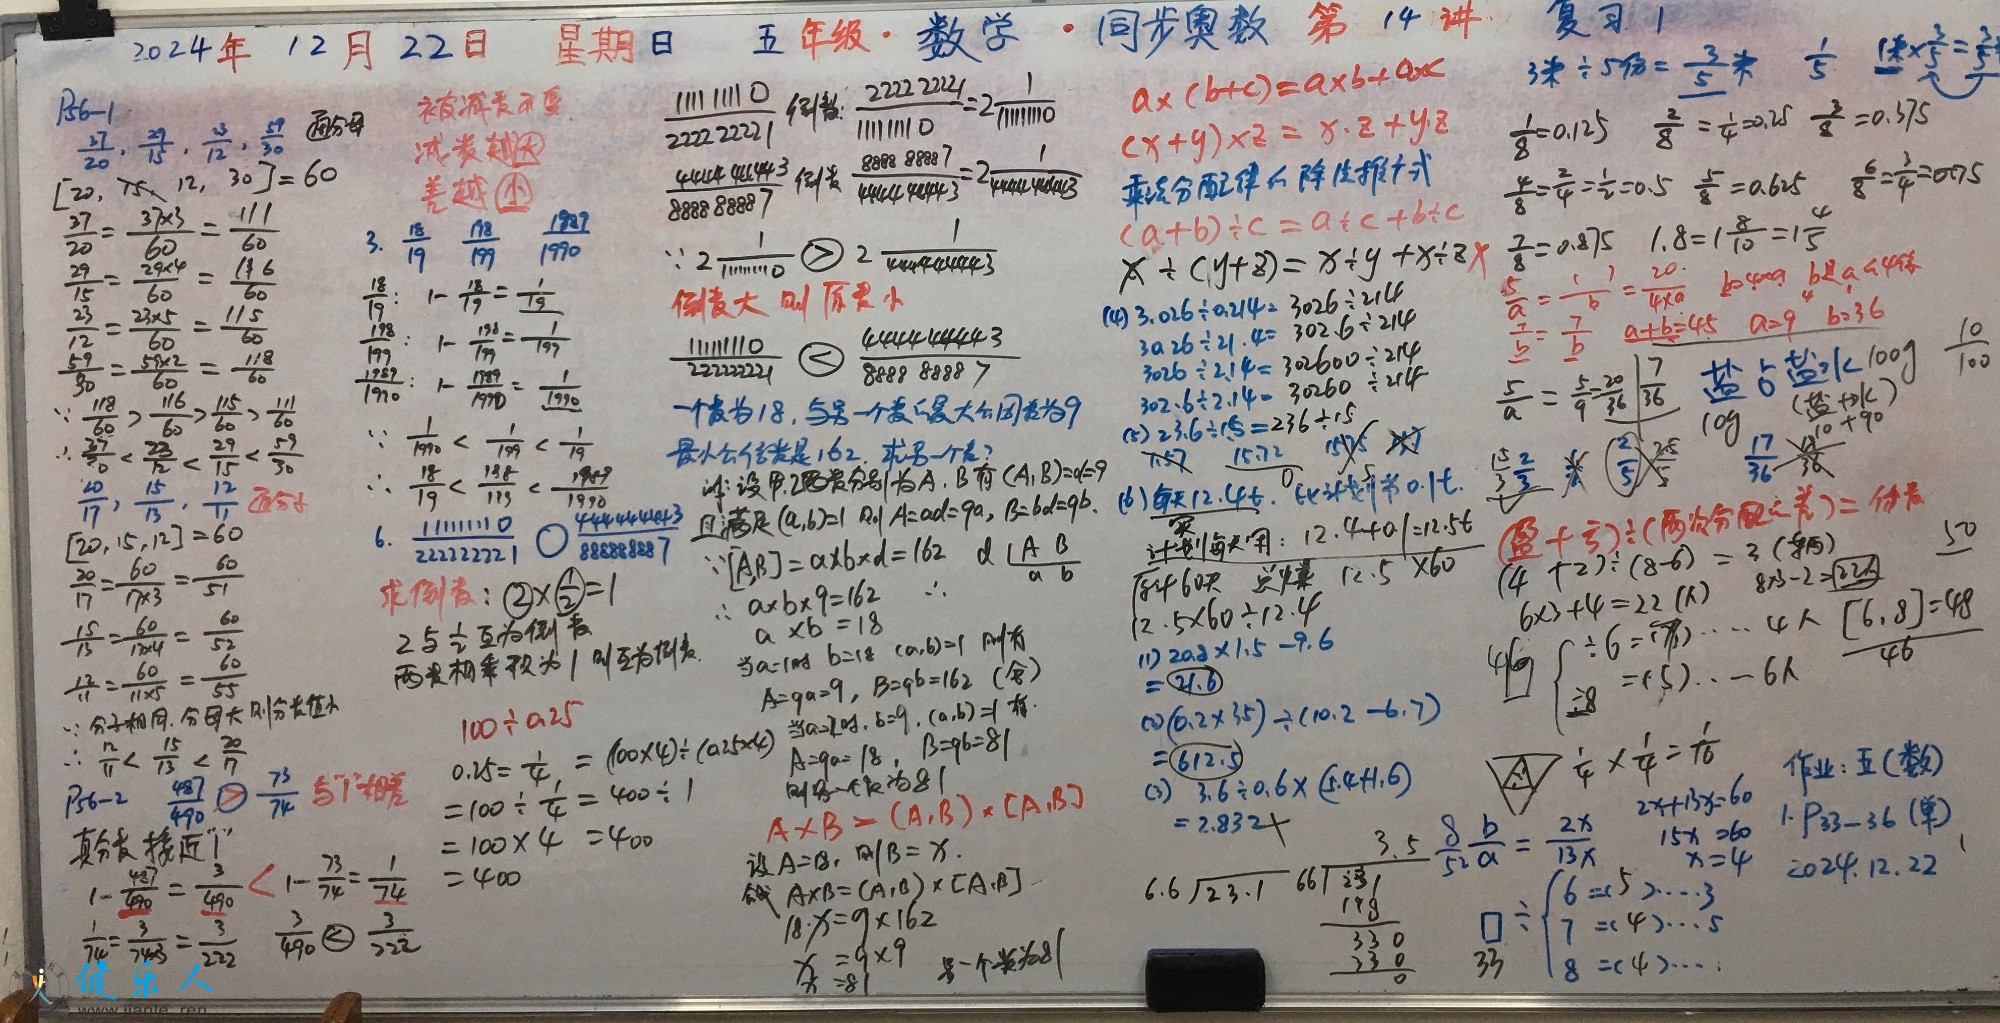 2024年 12月 22日 星期日 五年级·数学·同步奥数 第 14 讲 复习 1
P56-1
37/20, 29/15, 23/12, 59/30 通分母
[20, 15, 12, 30] = 60
37/20 = 37×3/60 = 111/60
29/15 = 29×4/60 = 116/60
23/12 = 23×5/60 = 115/60
59/30 = 59×2/60 = 118/60
∵ 118/60 > 116/60 > 115/60 > 111/60
∴ 37/20 < 23/12 < 29/15 < 59/30
20/17, 15/13, 12/11 通分子
[20, 15, 12] = 60
20/17 = 60/17×3 = 60/51
15/13 = 60/13×4 = 60/52
12/11 = 60/11×5 = 60/55
∵ 分子相同. 分母大则分数值小
∴ 12/11 < 15/13 < 20/17
P56-2 487/490 > 73/74 与"1"相差
真分数 接近"1"
1-487/490 = 3/490 < 1-73/74 = 1/74
1/74 = 3/74×3 = 3/222 3/490 < 3/222
健乐人
www.jianle.ren
被减数不变
减数越大
差越小
3. 18/19 198/199 1989/1990
18/19: 1-18/19 = 1/19
198/199: 1-198/199 = 1/199
1989/1990: 1-1989/1990 = 1/1990
∵ 1/1990 < 1/199 < 1/19
∴ 18/19 < 198/199 < 1989/1990
6. 111111110/222222221 ○ 444444443/888888887
求倒数: 2 × 1/2 = 1
2与1/2互为倒数
两数相乘积为1则互为倒数.
100÷0.25
0.25 = 1/4 = (100×4)÷(0.25×4)
= 100÷1/4 = 400÷1
= 100×4 = 400
= 400
111111110/222222221 倒数: 222222221/111111110 = 2 1/111111110
444444443/888888887 倒数 888888887/444444443 = 2 1/444444443
∵ 2 1/111111110 > 2 1/444444443
倒数大 则 原数小
111111110/222222221 < 444444443/888888887
一个数为18, 与另一个数的最大公因数为9
最小公倍数是162, 求另一个数?
解: 设甲.乙两数分别为A.B 有(A,B)=d=9
且满足(a,b)=1 则A=ad=9a, B=bd=9b.
∵ [A,B] = a×b×d = 162 d | A B
a b
∴ a×b×9=162 ∴
a×b = 18
当a=1时 b=18 (a,b)=1 则有
A=9a=9, B=9b=162 (舍)
当a=2时, b=9, (a,b)=1 有.
A=9a=18, B=9b=81
则另一个数为81
A×B = (A,B)×[A,B]
设A=18, 则B=x.
A×B=(A,B)×[A,B]
18·x=9×162
x =9×9
x =81 另一个数为81
a×(b+c)=a×b+a×c
(x+y)×z = x·z+y·z
乘法分配律 除法推广式
(a+b)÷c = a÷c+b÷c
x÷(y+z) = x÷y+x÷z ×
(4) 3.026÷0.214= 3026÷214
30.26÷21.4= 302.6÷214
3026÷2.14= 302600÷214
302.6÷2.14= 30260÷214
(5) 23.6÷1.5=236÷15
1.57 15.72
0
(6) 每天12.4t. 比计划节0.1t.
计划每天用: 12.4+0.1=12.5t
12.5×60
12.5×60÷12.4
(1) 20.8×1.5-9.6
= 21.6
(2) (0.2×35)÷(10.2-6.7)
= 612.5
(3) 3.6÷0.6×(5.4+1.6)
= 2.832 ×
3.5
6.6√23.1 66√231
198
330
330
0
3米÷5份 = 3/5米 1/5 1米×3/5=3/5米
1/8=0.125 2/8=1/4=0.25 3/8=0.375
4/8=2/4=1/2=0.5 5/8=0.625 6/8=3/4=0.75
7/8=0.875 1.8=1 8/10=1 4/5
5/a = 1/b = 20/4×a b=4×a b是a的4倍
7/b = 7/b a+b=45 a=9 b=36
5/a = 5/9 = 20/36 | 7/36
盐占盐水 100g 10/100
10g (盐+水)
10+90
17/36
(盈+亏)÷(两次分配之差)=份数
(4+2)÷(8-6) = 3 (辆) 50
8×3-2=22人
6×3+4=22(人)
46 ÷6 =(7)····4人 [6,8]=48
÷8 =(5)··-6人 46
1/4×1/4=1/16
2x+13x=60
8/52 b/a = 2x/13x 15x=60
x=4
÷ 6 =(5)····3
7 =(4)···5
33 8 =(4)···
作业: 五(数)
1. P33-36(单)
2024.12.22